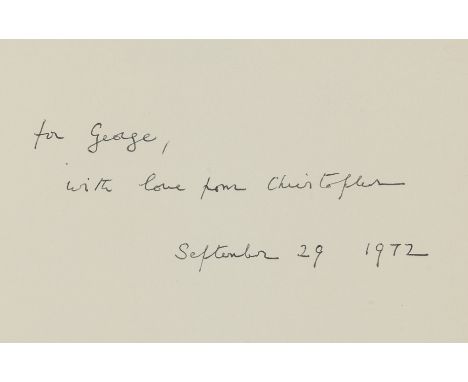 for George,
with love from Christopher
September 29 1972